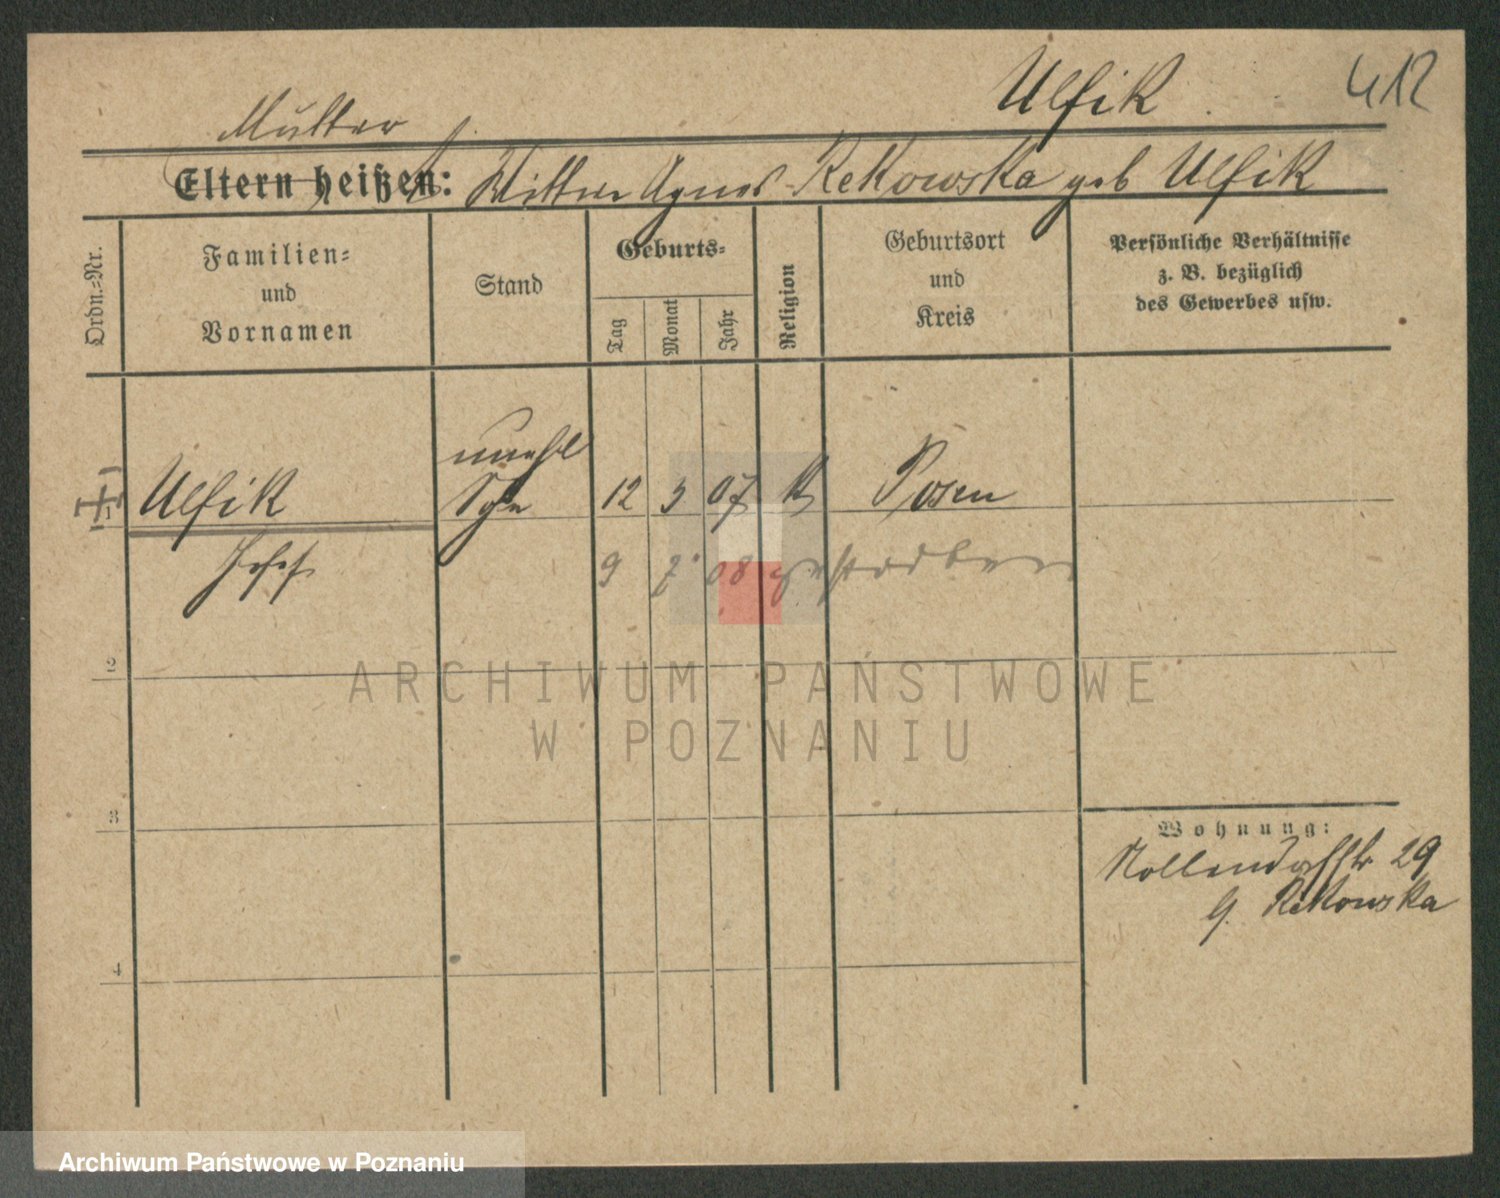 Ulfik
412
Mutter
Eltern heißen: Wittwe Agnes Rekowska geb Ulfik
Ordn.-Nr.
Familien-
und
Vornamen
Stand
Geburts-
Tag
Monat
Jahr
Religion
Geburtsort
und
Kreis
Persönliche Verhältnisse
z. B. bezüglich
des Gewerbes usw.
unehl
1 Ulfik Sohn 12 3 07 k Posen
Josef 9 7 08 gestorben
2
3
4
Wohnung:
Nollendorfstr 29
b. Rekowska
ARCHIWUM PAŃSTWOWE
W POZNANIU
Archiwum Państwowe w Poznaniu